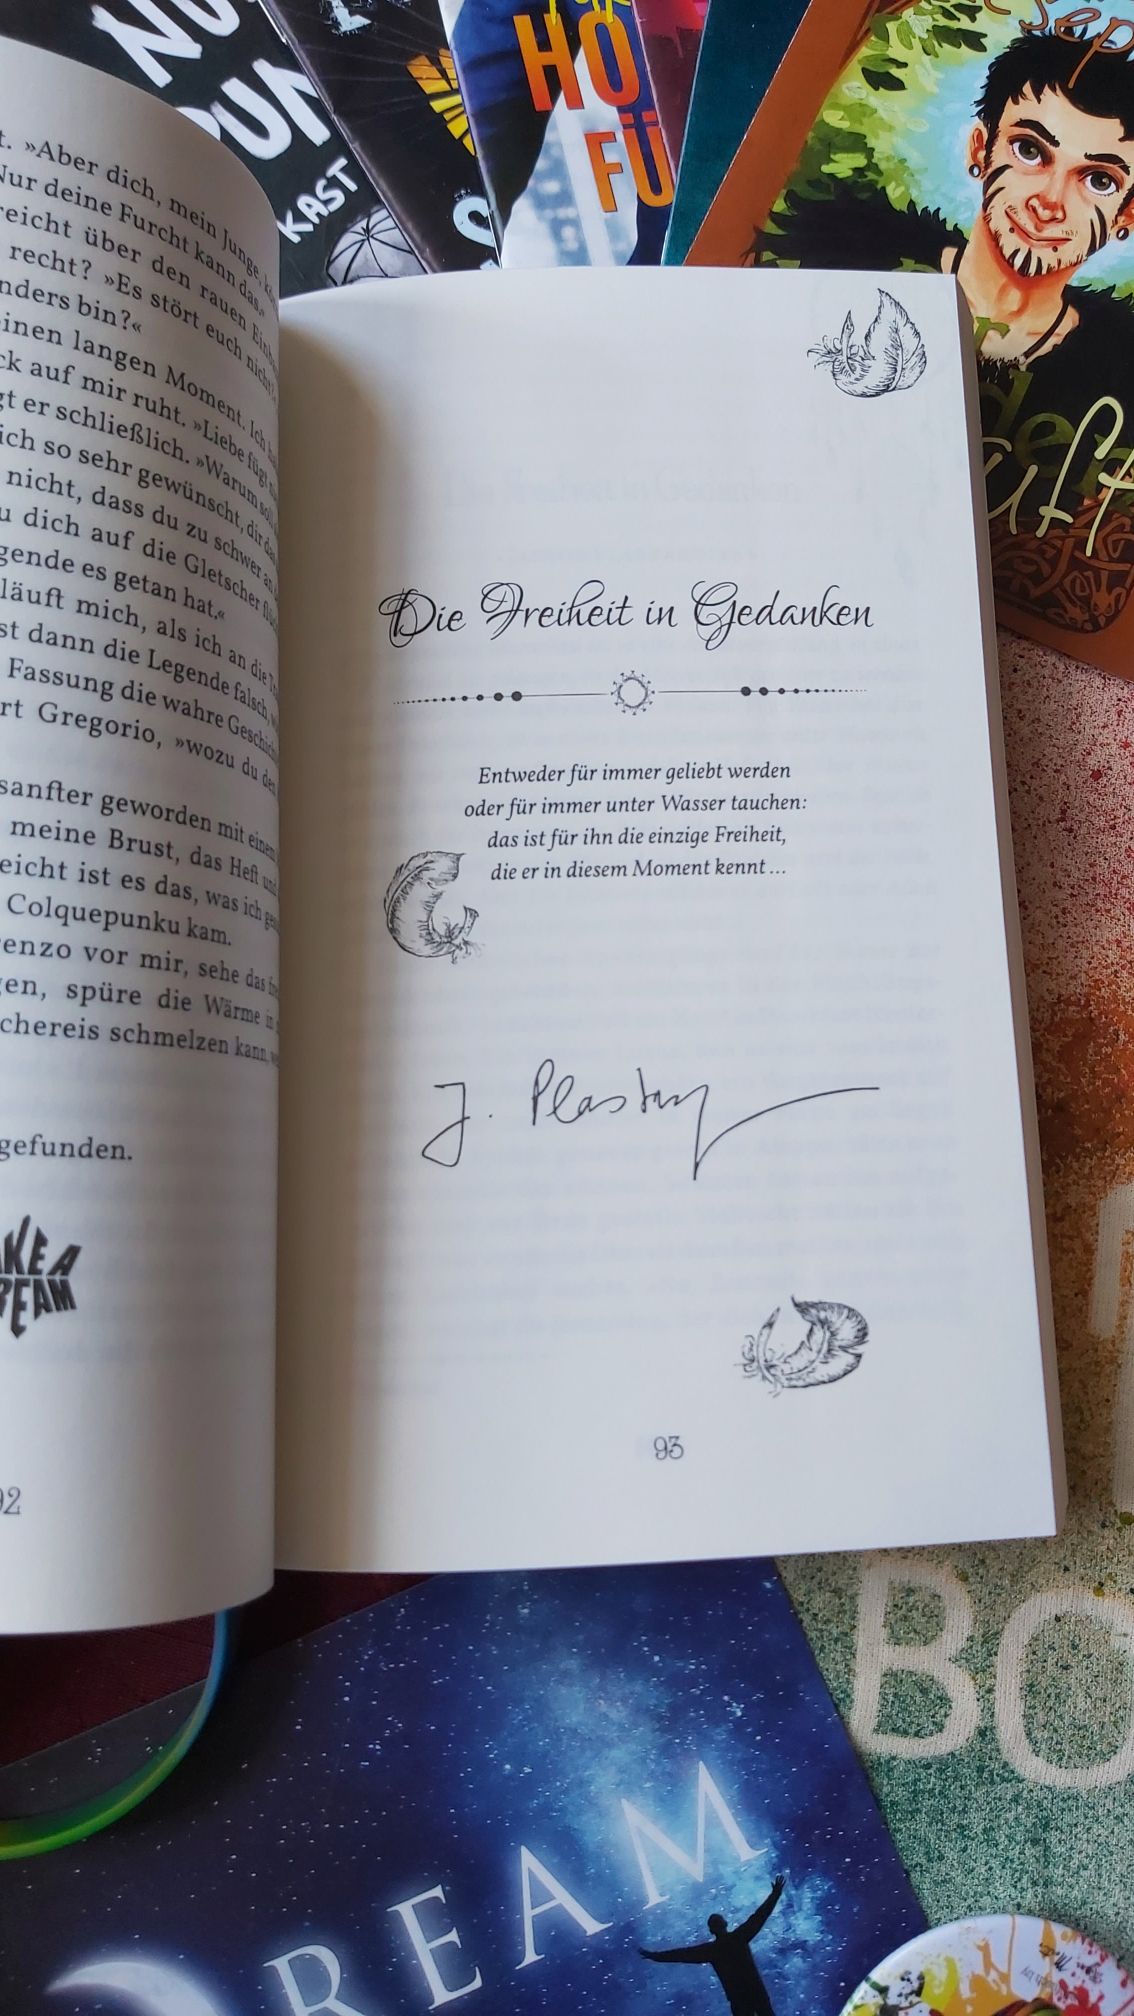 KAST
HO
FÜ
t. »Aber dich, mein Junge,
Nur deine Furcht kann das.«
reicht über den rauen
recht? »Es stört euch nicht,
nders bin?«
inen langen Moment. Ich
ck auf mir ruht. »Liebe fügt
gt er schließlich. »Warum soll
ich so sehr gewünscht, dir das
nicht, dass du zu schwer an
u dich auf die Gletscher
gende es getan hat.«
läuft mich, als ich an die
st dann die Legende falsch,
Fassung die wahre
rt Gregorio, »wozu du den
sanfter geworden mit einem
meine Brust, das Heft und
eicht ist es das, was ich
Colquepunku kam.
enzo vor mir, sehe das
gen, spüre die Wärme in
chereis schmelzen kann,
gefunden.
AKE A
REAM
92
Die Freiheit in Gedanken
Entweder für immer geliebt werden
oder für immer unter Wasser tauchen:
das ist für ihn die einzige Freiheit,
die er in diesem Moment kennt ...
J. Plastargy
93
BO
DREAM